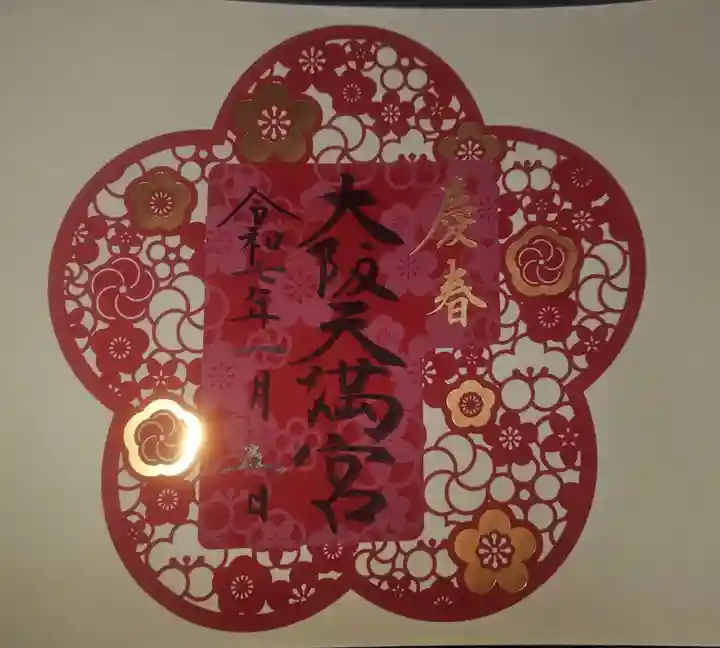 慶春
大阪天満宮
令和七年一月五日